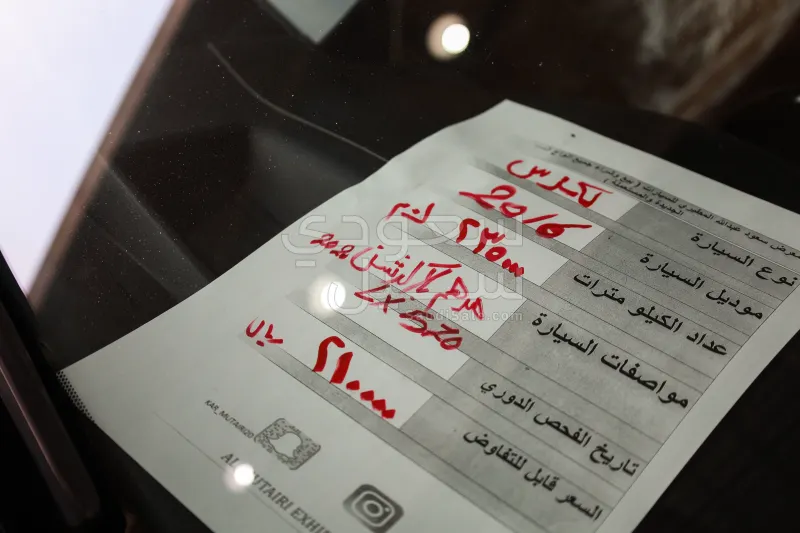 معرض سعود عبدالله المطيري للسيارات ( بيع وشراء جميع انواع السيارات
الجديدة والمستعملة )
نوع السيارة لكزس
موديل السيارة 2016
عداد الكيلو مترات ٢٣٥٠٠٠ كم
مواصفات السيارة
2021
LX 570
تاريخ الفحص الدوري
السعر قابل للتفاوض ٢١٠٠٠٠ ريال
KAR_MUTAIRI20
سعودي سيل